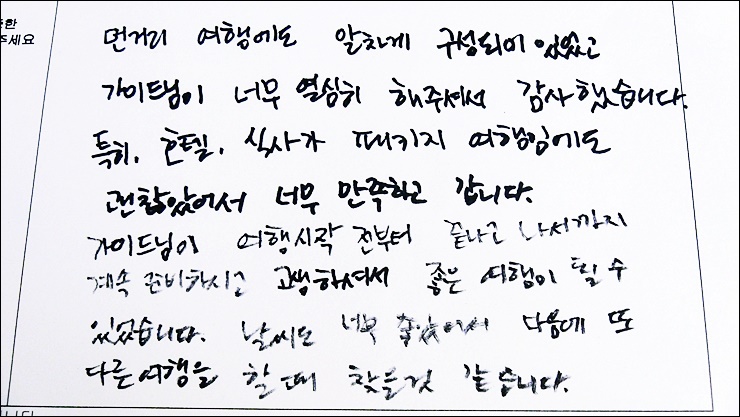 한
주세요
먼거리 여행에도 알차게 구성되어 있었고
가이드님이 너무 열심히 해주셔서 감사했습니다.
특히, 호텔, 식사가 패키지 여행임에도
괜찮았어서 너무 만족하고 갑니다.
가이드님이 여행시작 전부터 끝나고 나서까지
계속 준비하시고 고생하셔서 좋은 여행이 될 수
있었습니다. 날씨도 너무 좋았어서 다음에 또
다른여행을 할 때 찾을것 같습니다.
니다